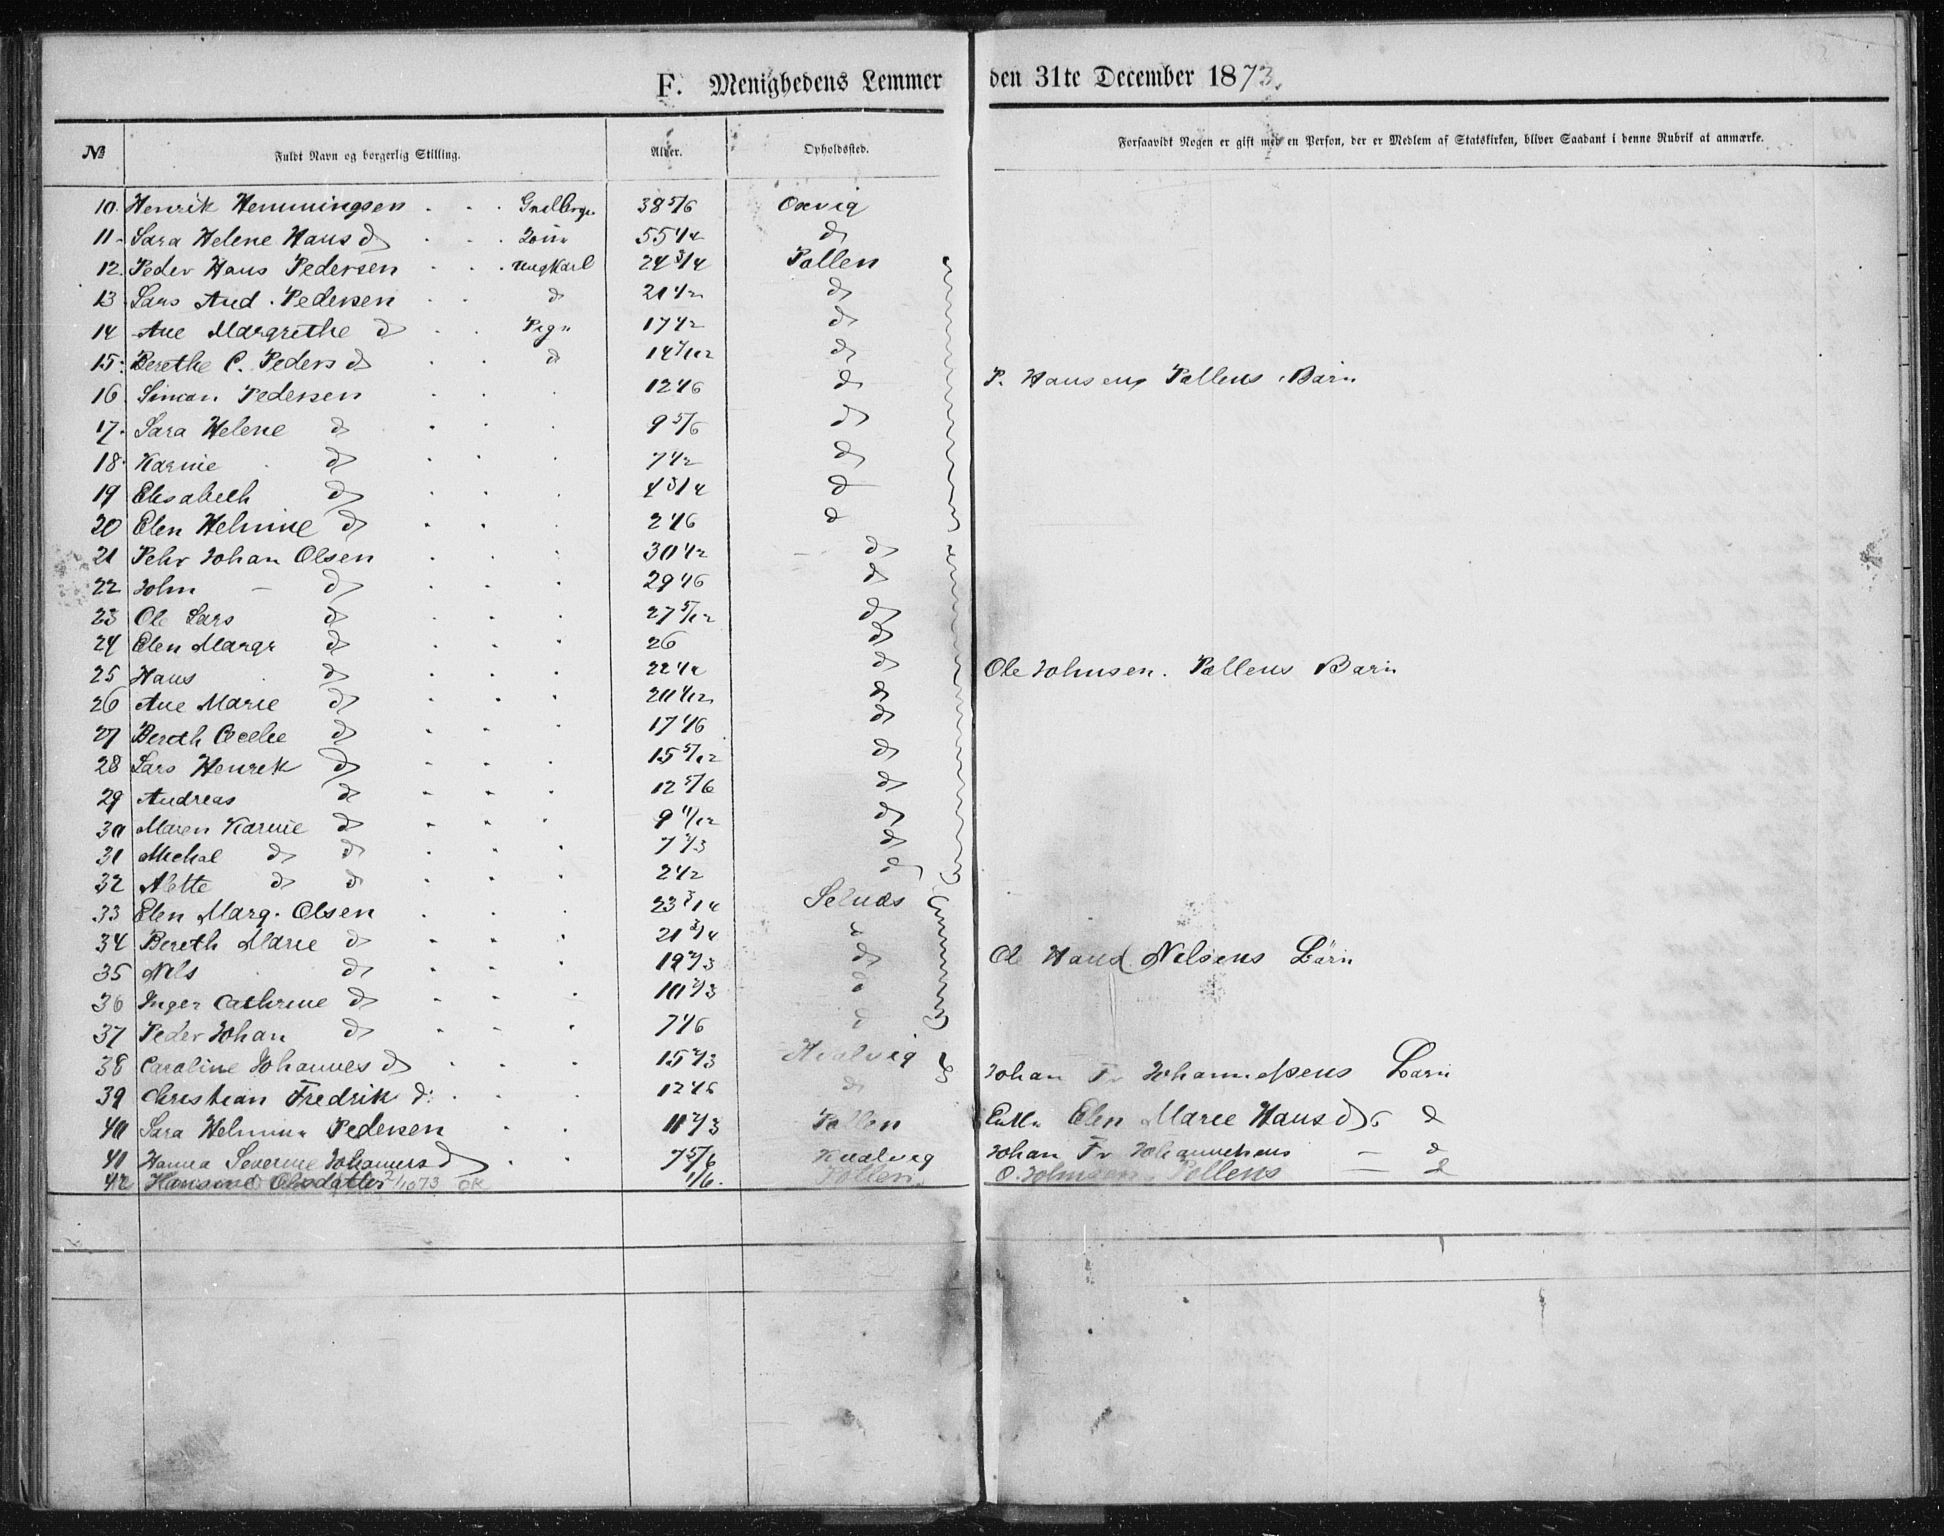 F. Menighedens Lemmer den 31te December 1873.
№ Fuldt Navn og borgerlig Stilling. Alder. Opholdssted. Forsaavidt Nogen er gift med en Person, der er Medlem af Statskirken, bliver Saadant i denne Rubrik at anmærke.
10. Henrik Hemmingsen 38 5/6 Oxvig
11. Sara Helene Hans d 55 1/2 d
12. Peder Hans Pedersen Ungkarl 24 3/4 Pollen
13 Lars And. Pedersen d 21 1/2 d
14 Ane Margrethe d Pige 17 1/2 d
15. Berethe C. Peders d d 14 1/12 d
16 Simon Pedersen 12 1/6 d P. Hansens Pollens Barn
17. Sara Helene d 9 5/6 d
18. Karine d 7 1/2 d
19 Elisabeth d 4 3/4 d
20 Elen Helmine d 2 1/6 d
21 Pehr Johan Olsen 30 1/2 d
22 John — d 29 1/6 d
23 Ole Lars d 27 5/12 d
24 Elen Margr d 26 d
25 Hans d 22 1/2 d Ole Johnsen. Pollens Barn
26 Ane Marie d 20 1/12 d
27 Bereth Cecelie d 17 1/6 d
28 Lars Henrik d 15 5/12 d
29 Andreas d 12 5/6 d
30 Maren Karine d 9 11/12 d
31 Michal d d 7 1/3 d
32 Alette d d 2 1/2 d
33 Elen Marg. Olsen 23 3/4 Selnæs
34 Bereth Marie d 21 3/4 d
35 Nils d 19 2/3 d Ole Hans Nilsens Börn
36 Inger Cathrine d 10 2/3 d
37 Peder Johan d 7 1/6 d
38 Caroline Johannes d 15 2/3 Hvalvig Johan Fr Johannesens Barn
39 Christian Fredrik d: 12 1/6 d
40 Sara Helmine Pedersen 11 2/3 Pollen Enke Elen Marie Hans d d
41 Hanna Severine Johannes d 7 5/6 Kvalvig Johan Fr Johannesens — d
42 Hansine Olsdatter 1/6. Pollen O. Johnsen Pollens — d